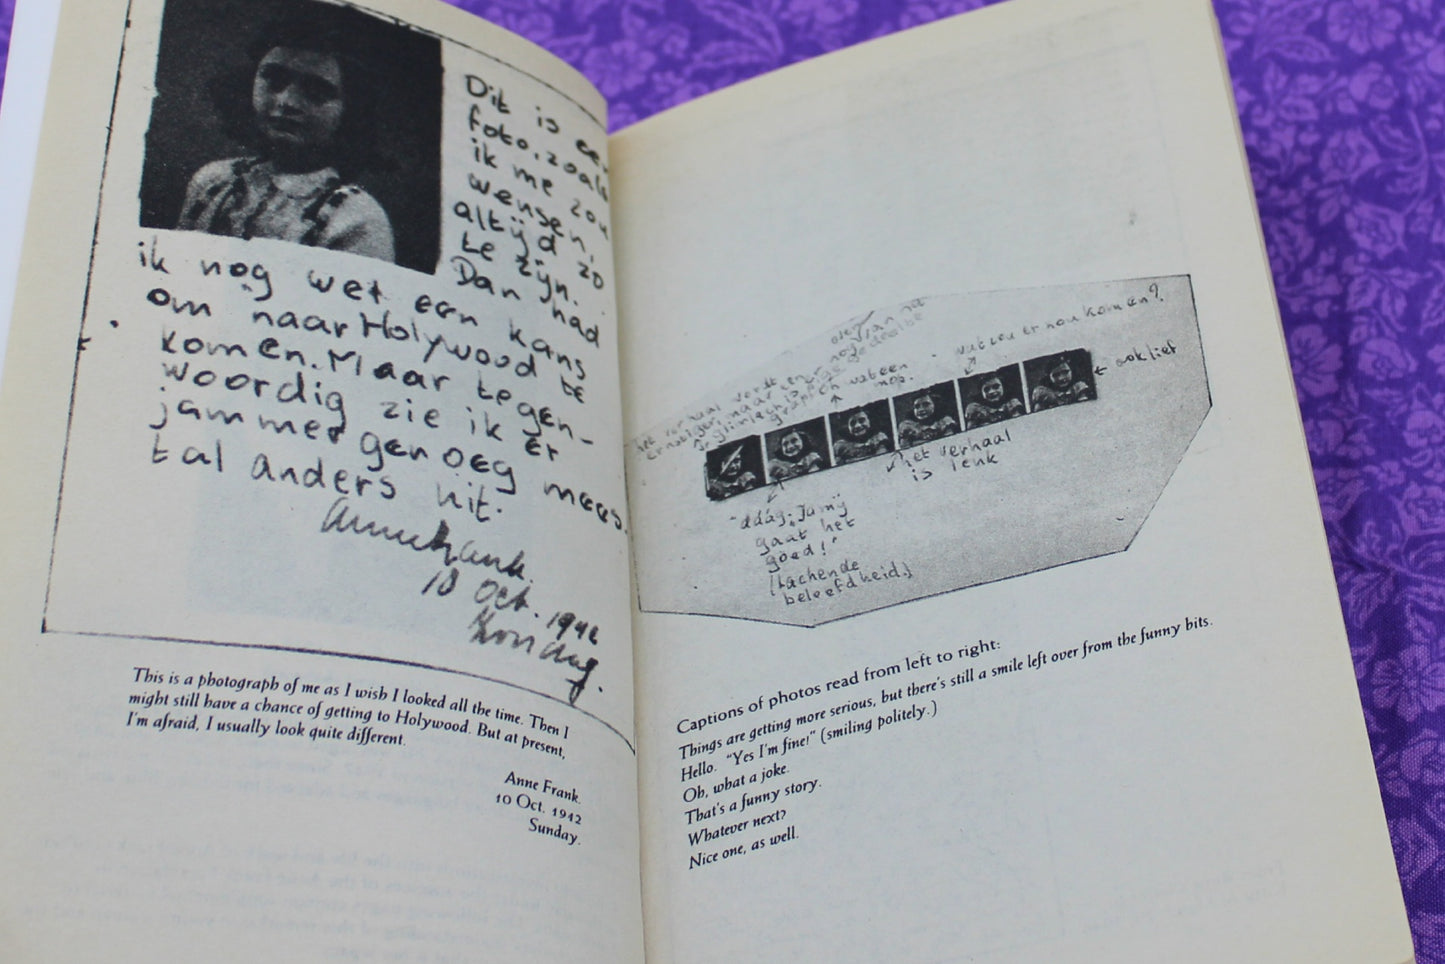 Dit is een
foto, zoals
ik me zou
wensen,
altijd zo
te zijn.
Dan had
ik nog wel een kans
om naar Holywood te
komen. Maar tegen-
woordig zie ik er
jammer genoeg mees
tal anders uit.
Anne Frank.
10 Oct. 1942
Zondag.
This is a photograph of me as I wish I looked all the time. Then I
might still have a chance of getting to Holywood. But at present,
I'm afraid, I usually look quite different.
Anne Frank.
10 Oct. 1942
Sunday.
het verhaal wordt
ernstiger, maar
er nog van de
glimlach is
grappige gedeelte
oh wat een
mop.
wat zou er nou komen?
ook lief
het verhaal
is leuk
"dáág. Jamij
gaat het
goed!"
(lachende
beleefdheid.)
Captions of photos read from left to right:
Things are getting more serious, but there's still a smile left over from the funny bits.
Hello. "Yes I'm fine!" (smiling politely.)
Oh, what a joke.
That's a funny story.
Whatever next?
Nice one, as well.